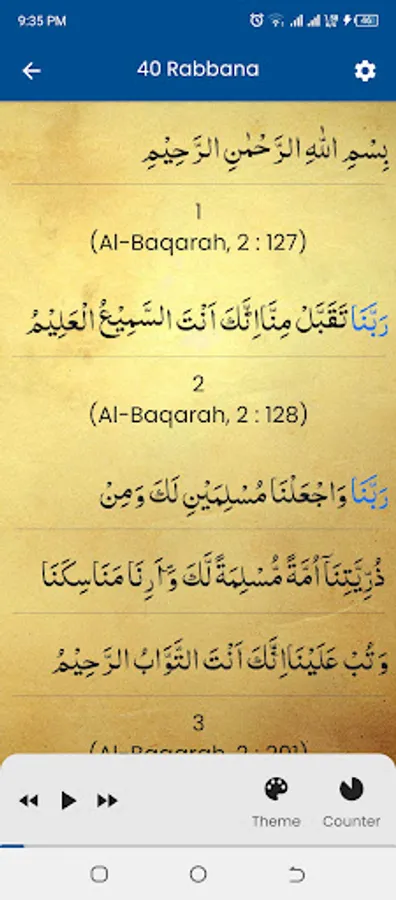 9:35 PM
40 Rabbana
بِسْمِ اللّٰهِ الرَّحْمٰنِ الرَّحِيْمِ
1
(Al-Baqarah, 2 : 127)
رَبَّنَا تَقَبَّلْ مِنَّااِنَّكَ اَنْتَ السَّمِيْعُ الْعَلِيْمُ
2
(Al-Baqarah, 2 : 128)
رَبَّنَا وَاجْعَلْنَا مُسْلِمَيْنِ لَكَ وَمِنْ
ذُرِّيَّتِنَآ اُمَّةً مُّسْلِمَةً لَّكَ وَاَرِنَا مَنَاسِكَنَا
وَتُبْ عَلَيْنَااِنَّكَ اَنْتَ التَّوَّابُ الرَّحِيْمُ
3
(Al-Baqarah, 2 : 201)
Theme
Counter